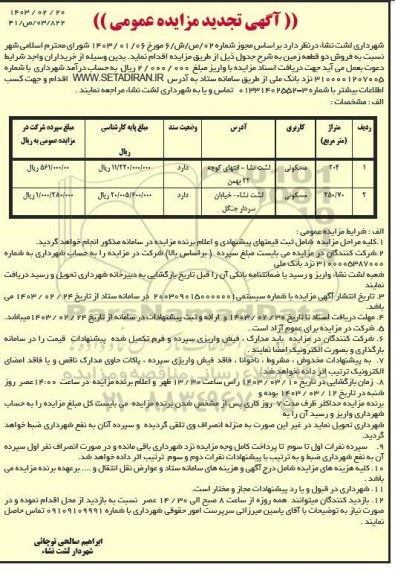 ۱۴۰۳ / ۰۲ / ۲۰
۴۱/ص/۰۳/۸۲۲
(( آگهی تجدید مزایده عمومی ))
شهرداری لشت نشاء درنظر دارد براساس مجوز شماره ۰۲/ص/ش/۶ مورخ ۱۴۰۳/۰۱/۰۶ شورای محترم اسلامی شهر
نسبت به فروش دو قطعه زمین به شرح جدول ذیل از طریق مزایده اقدام نماید. بدین وسیله از خریداران واجد شرایط
دعوت بعمل می آید جهت دریافت اسناد مزایده با واریز مبلغ ۲/۰۰۰/۰۰۰ ریال به حساب درآمد شهرداری با شماره
۳۱۰۰۰۰۱۲۰۷۰۰۵ نزد بانک ملی از طریق سامانه ستاد به آدرس WWW.SETADIRAN.IR اقدام و جهت کسب
اطلاعات بیشتر با شماره ۳-۰۱۳۳۱۴۰۲۵۵۲ تماس و یا به شهرداری لشت نشاء مراجعه نمایند .
الف : مشخصات :
ردیف متراژ (متر مربع) کاربری آدرس وضعیت سند مبلغ پایه کارشناسی مبلغ سپرده شرکت در مزایده عمومی به ریال
۱ ۲۰۴ مسکونی لشت نشا - انتهای کوچه ۲۲ بهمن دارد ۱۱/۲۲۰/۰۰۰/۰۰۰ ریال ۵۶۱/۰۰۰/۰۰۰ ریال
۲ ۲۵۰/۷۰ مسکونی لشت نشاء- خیابان سردار جنگل دارد ۲۰/۰۰۵/۶۰۰/۰۰۰ ریال ۱/۰۰۰/۲۸۰/۰۰۰ ریال
الف : شرایط مزایده عمومی :
۱.کلیه مراحل مزایده شامل ثبت قیمتهای پیشنهادی و اعلام برنده مزایده در سامانه مذکور انجام خواهد گردید.
۲.شرکت کنندگان در مزایده می بایست مبلغ سپرده ( براساس بالا) شرکت در مزایده را به حساب شهرداری به شماره
۳۱۰۰۰۰۵۳۸۷۰۰۰ نزد بانک ملی
شعبه لشت نشاء واریز و رسید یا ضمانتنامه بانکی آن را قبل تاریخ بازگشایی به دبیرخانه شهرداری تحویل و رسید دریافت
نمایند
۳. تاریخ انتشار آگهی مزایده با شماره سیستمی ۲۰۰۳۰۹۰۱۵۰۰۰۰۰۱ در سامانه ستاد از تاریخ ۲۴ / ۰۲ / ۱۴۰۳ می
باشد.
۴. مهلت دریافت اسناد تا تاریخ ۳۰ / ۰۲ / ۱۴۰۳ و ارائه و ثبت پیشنهادات در سامانه از تاریخ ۲۴ / ۰۲ / ۱۴۰۳ میباشد.
۵. شرکت در مزایده برای عموم آزاد است .
۶. شرکت کنندگان در مزایده باید مدارک ، فیش واریزی سپرده و فرم تکمیل شده پیشنهادات قیمت را در سامانه
بارگذاری و بصورت الکترونیک امضا نمایند .
۷. به پیشنهادات مخدوش ، مشروط ، ناخوانا ، فاقد فیش واریزی سپرده ، پاکات حاوی مدارک ناقص و یا فاقد امضای
الکترونیک ترتیب اثر داده نخواهد شد.
۸. زمان بازگشایی در تاریخ ۱۰ / ۰۳ / ۱۴۰۳ راس ساعت ۱۳/۳۰ ظهر و اعلام برنده مزایده در ساعت ۱۴:۰۰ عصر روز
شنبه در تاریخ ۱۲ / ۰۳ / ۱۴۰۳ بوده و
برنده مزایده حداکثر ظرف مدت ۷ روز کاری پس از مشخص شدن برنده مزایده می بایست کل مبلغ مزایده را به حساب
شهرداری واریز و رسید آن را به
شهرداری تحویل نماید در غیر این صورت به منزله انصراف وی تلقی گردیده و سپرده آنان به نفع شهرداری ضبط خواهد
گردید.
۹. سپرده نفرات اول تا سوم تا پرداخت کامل وجه مزایده نزد شهرداری باقی مانده و در صورت انصراف نفر اول سپرده
آن به نفع شهرداری ضبط و به ترتیب با پیشنهادات نفرات دوم و سوم ترتیب اثر داده خواهد شد.
۱۰. کلیه هزینه های مزایده شامل درج آگهی و هزینه های سامانه ستاد و عوارض نقل انتقال و .... برعهده برنده مزایده می
باشد .
۱۱. شهرداری در قبول و یا رد پیشنهادات مجاز و مختار است.
۱۲. بازدید کنندگان میتوانند همه روزه از ساعت ۸ صبح الی ۳۰ / ۱۴ عصر نسبت به بازدید از محل اقدام نموده و در
صورت نیاز به توضیحات با آقای یاسین میرزائی سرپرست امور حقوقی شهرداری با شماره ۰۹۱۰۹۱۰۹۹۹۱ تماس حاصل
نمایند .
ابراهیم صالحی نوچائی
شهردار لشت نشاء